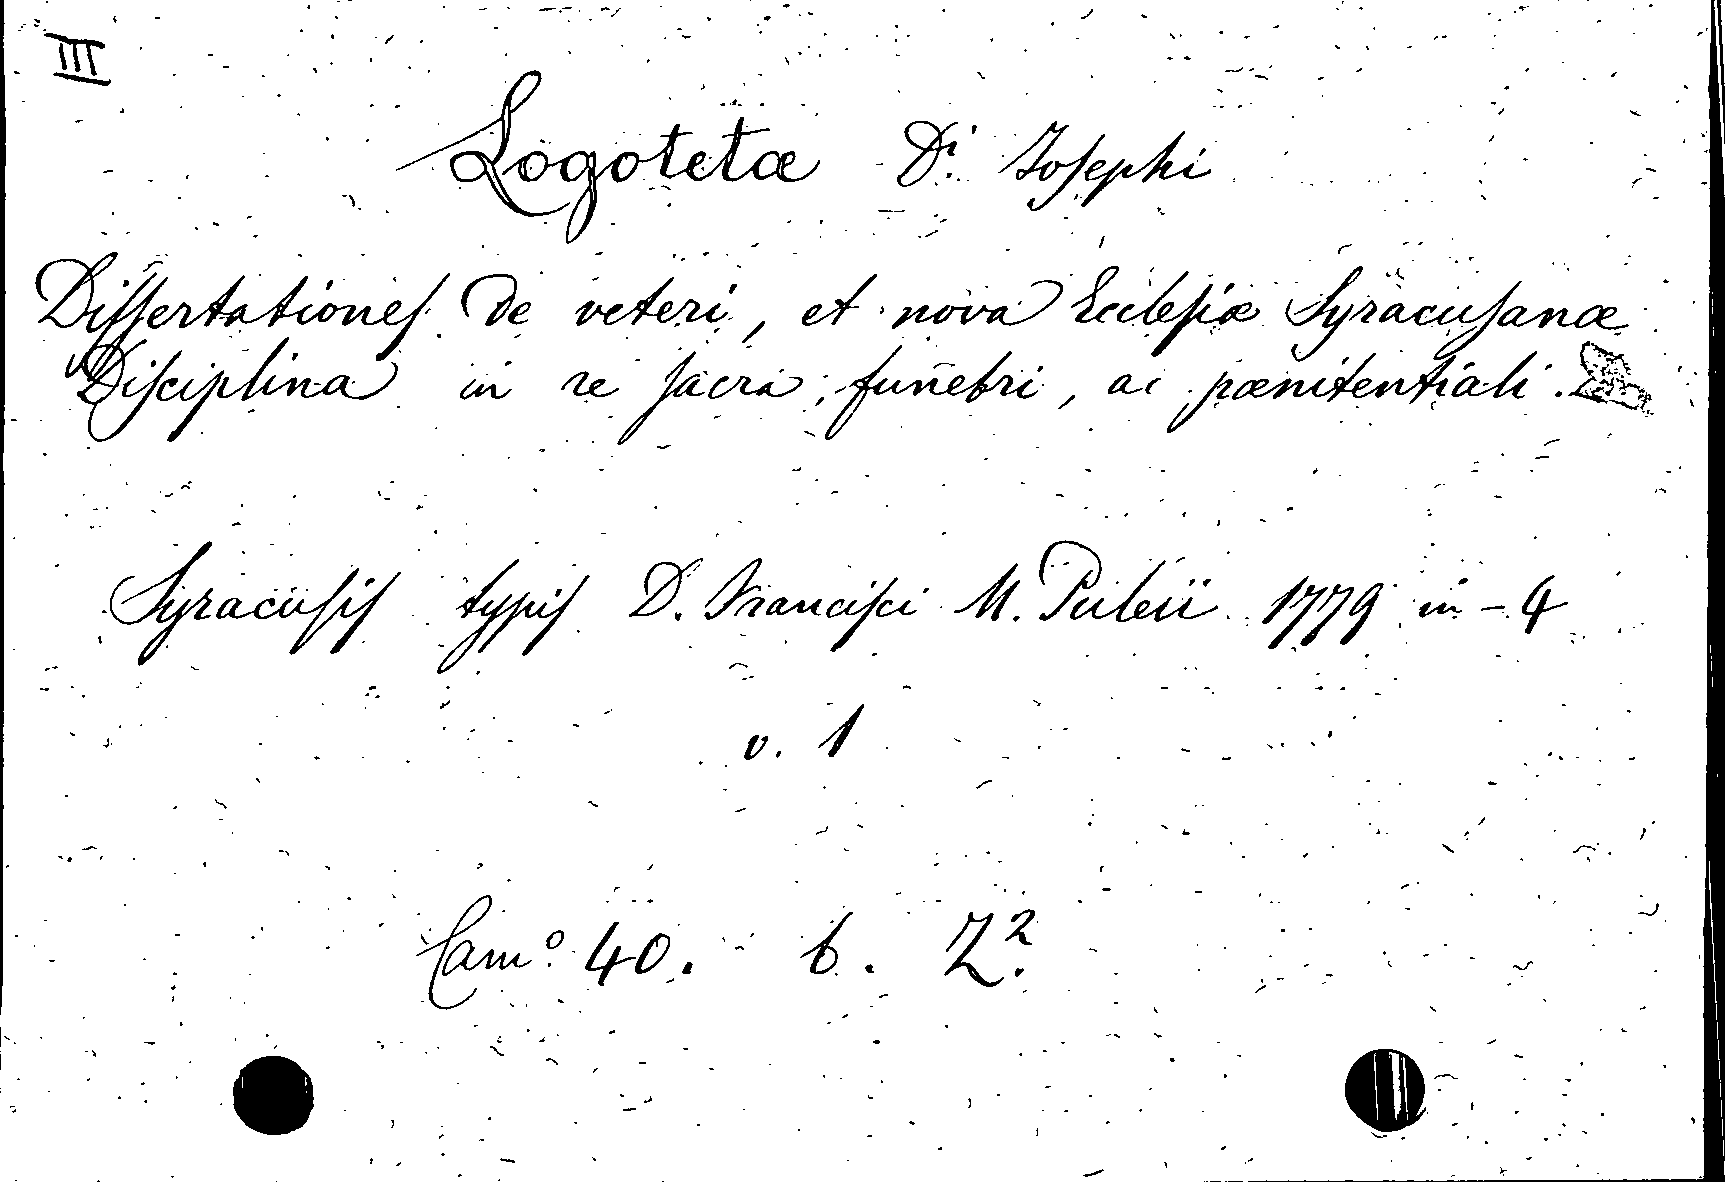 III
Logotetæ Di. Josephi
Dissertationes De veteri, et nova Ecclesiæ Syracusanæ
Disciplina in re sacra, funebri, ac pœnitentiali.
Syracusis typis D. Francisci M. Puleii 1779 in-4
v. 1
Camº 40. b. Z².